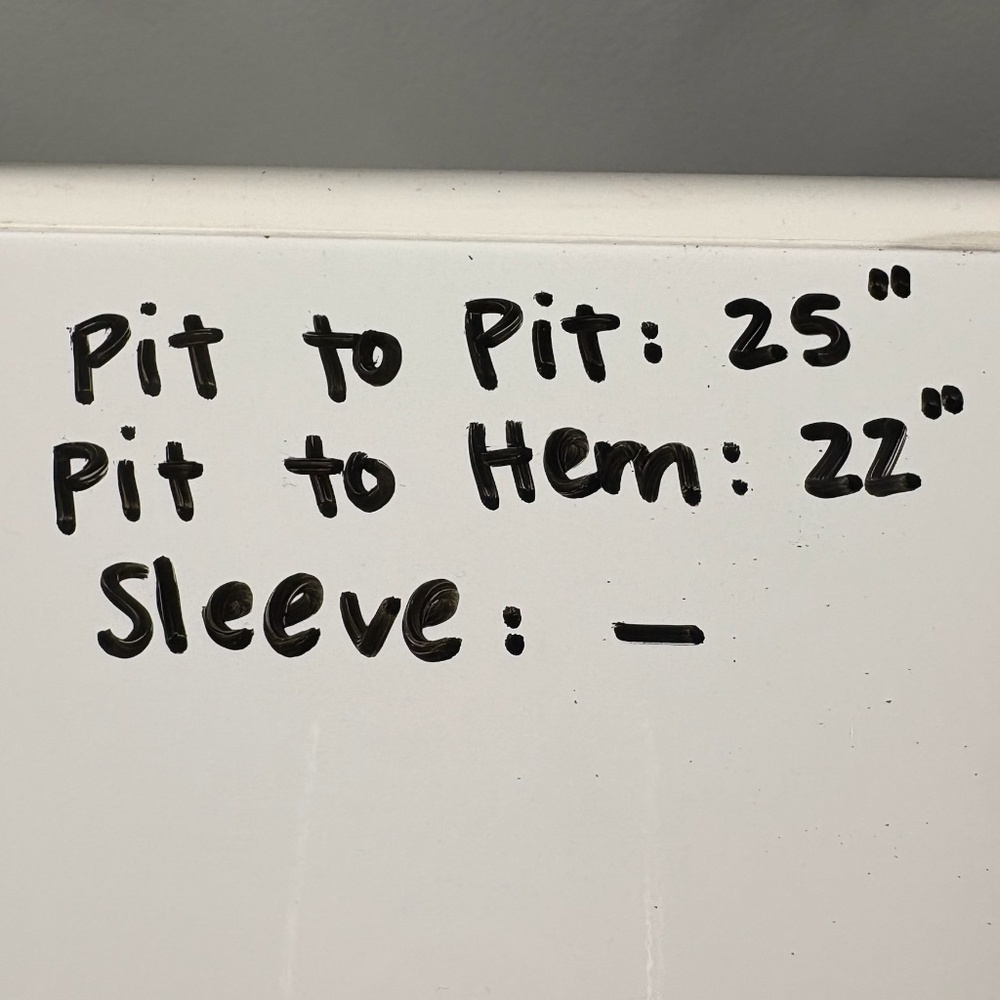 Pit to Pit: 25"
Pit to Hem: 22"
Sleeve: —